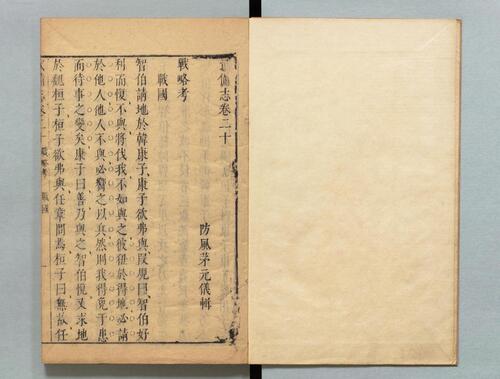 備志卷二十
防風茅元儀輯
戰略考
戰國
智伯請地於韓康子康子欲弗與段規曰智伯好
利而愎不與將伐我不如與之彼狃於得地必請
於他人他人不與必嚮之以兵然則我得免於患
而待事之變矣康子曰善乃與之智伯悅又求地
於魏桓子桓子欲弗與任章問焉桓子曰無故任
備志卷二十 戰略考 戰國 一